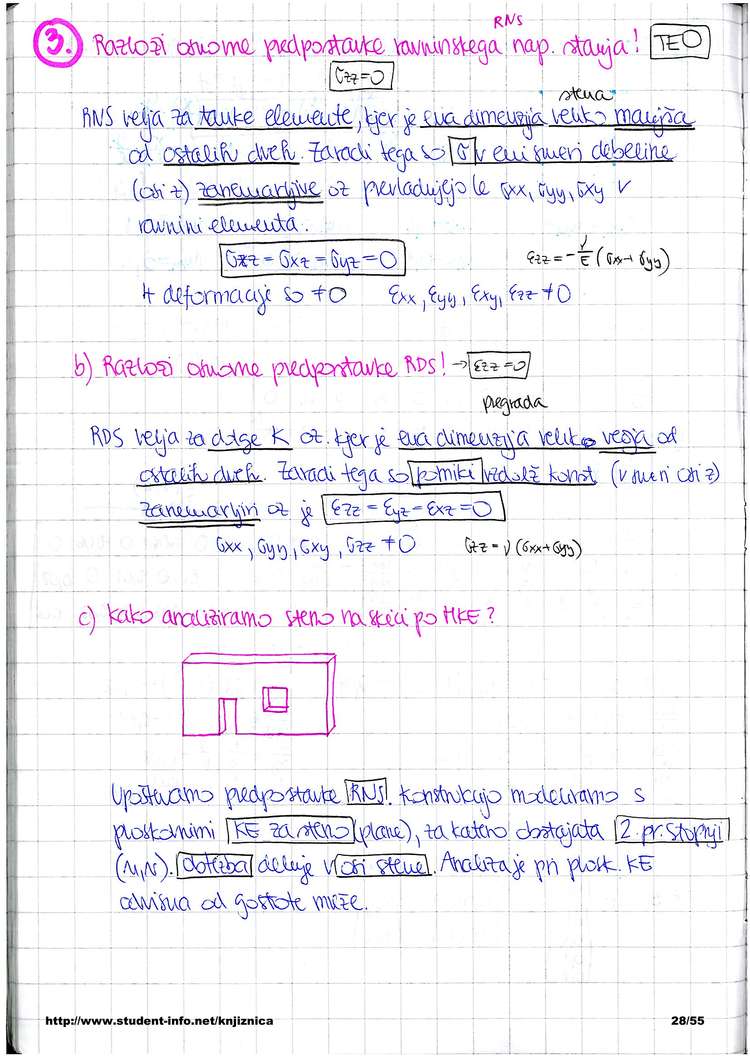 RNS
3. Razloži osnovne predpostavke ravninskega nap. stanja! TEO
σzz=0
stena
RNS velja za tanke elemente, kjer je ena dimenzija veliko manjša
od ostalih dveh. Zaradi tega so σ v eni smeri debeline
(osi z) zanemarljive oz prevladujejo le σxx, σyy, σxy v
ravnini elementa.
σzz = σxz = σyz = 0
εzz = -ν/E (σxx+σyy)
4 deformacije so ≠0 εxx, εyy, εxy, εzz ≠0
b) Razloži osnovne predpostavke RDS! → εzz=0
pregrada
RDS velja za dolge K oz. kjer je ena dimenzija veliko večja od
ostalih dveh. Zaradi tega so pomiki vzdolž konst (v smeri osi z)
zanemarljivi oz je εzz = εyz = εxz = 0
σxx, σyy, σxy, σzz ≠0 σzz = ν (σxx+σyy)
c) Kako analiziramo steno na skici po MKE?
Upoštevamo predpostavke RNS. Konstrukcijo modeliramo s
ploskovnimi KE za steno (plane), za katero obstajata 2 pr. stopnji
(u,v). Obtežba deluje v osi stene. Analiza je pri plosk. KE
odvisna od gostote mreže.
http://www.student-info.net/knjiznica
28/55